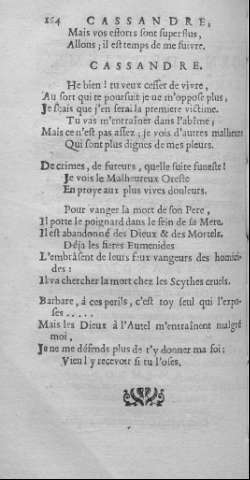 164 CASSANDRE,
Mais vos efforts sont superflus,
Allons ; il est temps de me suivre.
CASSANDRE.
He bien ! tu veux cesser de vivre,
Au sort qui te poursuit je ne m'oppose plus,
Je sçais que j'en serai la premiere victime.
Tu vas m'entraîner dans l'abîme ;
Mais ce n'est pas assez ; je vois d'autres malheurs
Qui sont plus dignes de mes pleurs.
De crimes, de fureurs, quelle suite funeste !
Je vois le Malheureux Oreste
En proye aux plus vives douleurs.
Pour vanger la mort de son Pere,
Il porte le poignard dans le sein de sa Mere.
Il est abandonné des Dieux & des Mortels.
Déja les fieres Eumenides
L'embrâsent de leurs feux vangeurs des homici-
des :
Il va chercher la mort chez les Scythes cruels.
Barbare, à ces perils, c'est toy seul qui l'expo-
ses .....
Mais les Dieux à l'Autel m'entraînent malgré
moi,
Je ne me défends plus de t'y donner ma foi ;
Vien l'y recevoir si tu l'oses.